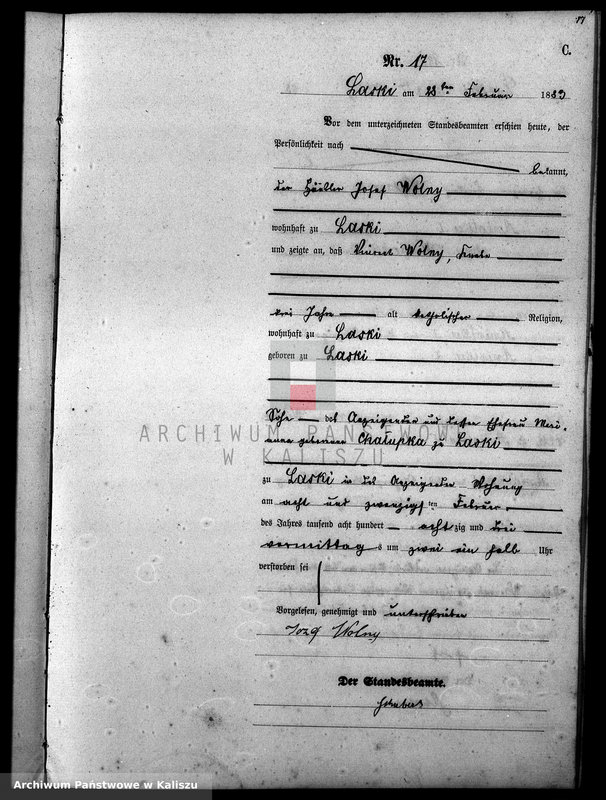 17
C.
Nr. 17
Laski am 28ten Februar 1883
Vor dem unterzeichneten Standesbeamten erschien heute, der
Persönlichkeit nach
bekannt,
der Häusler Josef Wolny
wohnhaft zu Laski
und zeigte an, daß Vincent Wolny, Knabe
drei Jahre alt katholischer Religion,
wohnhaft zu Laski
geboren zu Laski
Sohn des Anzeigenden und dessen Ehefrau Mari-
anna geborenen Chalupka zu Laski
ARCHIWUM PAŃSTWOWE
W KALISZU
zu Laski in des Anzeigenden Wohnung
am acht und zwanzigsten Februar
des Jahres tausend acht hundert achtzig und drei
vormittags um zwei ein halb Uhr
verstorben sei
Vorgelesen, genehmigt und unterschrieben
Wolny
Der Standesbeamte.
Archiwum Państwowe w Kaliszu